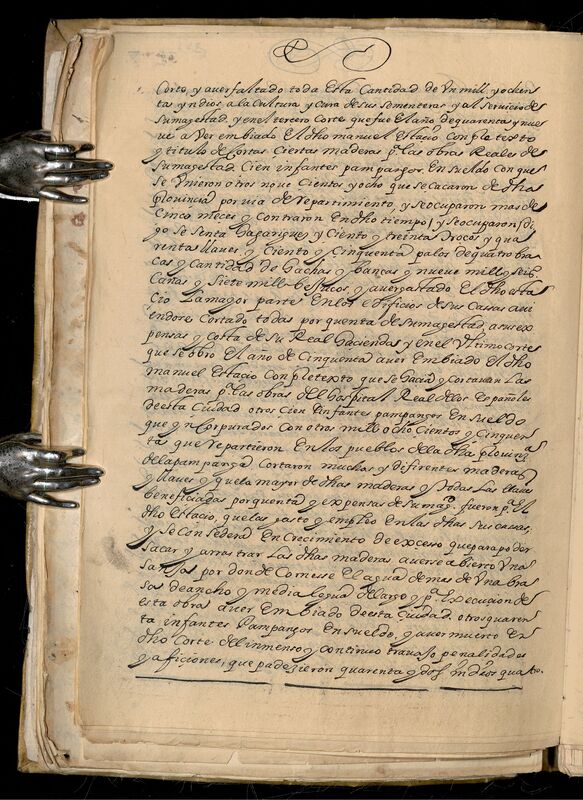 Corte, y aver faltado toda Esta Cantidad de Vn mill, y ochen
ta, yndios, a la Cultura, y Cura de sus sementeras, y al Servicio de
Su magestad, y en el tercero Corte, que fue El año de quarenta, y nue
ve a Ver embiado El dho manuel Estacio, Con pletexto
y titulo de Cortar Ciertas maderas pa las obras Reales de
Su magestad, Cien infantes pampangos En sueldo Con que
Se Vnieron otros nove Cientos y ocho que se sacaron de dha
Provincia, por via de repartimiento, y se ocuparon mas de
Cinco meces, y Contraron En dho tiempo, y se ocuparon, di
go se senta y Ciento y treinta trocos, y qua
renta llaves, y Ciento, y Cinquenta palos de quatro bra
cas, y Cantidad de y bancas, y nueve mill, y seis
Cañas, y Siete mill bejucos, y aver gastado El dho esta
Cio, La mayor parte En los edificios de sus Cassas, avi
endose Cortado todas por quenta de su magestad, a su ex
pensas, y Costa de su Real Haciendas, y en el Vltimo Corte
que se obró El año de Cinquenta aver Embiado El dho
manuel Estacio Con pletexto que se Hacia, y Cortavan Las
maderas pa las obras del Hospital Real de los Españoles
de esta Ciudad otros Cien Enfantes pampangos En sueldo
que yncorpurados Con otros mill ocho Cientos, y Cinquen
ta que repartieron En los pueblos de la dha provincia
de la pampanga, Cortaron muchas, y diferentes maderas
y llaves, y que la mayor de dhas maderas, y todas Las llaves
beneficiadas por quenta, y expensas de su magd. fueron pa El
dho Estacio, que las gasto, y empleo En las dhas sus cassas,
y se Considera En Crecimiento de exceso, que para podor
sacar, y arras trar Las dhas maderas averse abierto Vna
Sanjas por donde Corriese El agua de mas de Vna bra
sas de ancho, y media legua de largo, y pa la execucion de
esta obras aver Embiado de esta Ciudad, otros quaren
ta infantes Pampangos En sueldo, y aver muerto En
dho Corte del inmenso, y continuo travajo, penalidades
y aflicciones, que padezieron quarenta, y dos, indios, qua to.